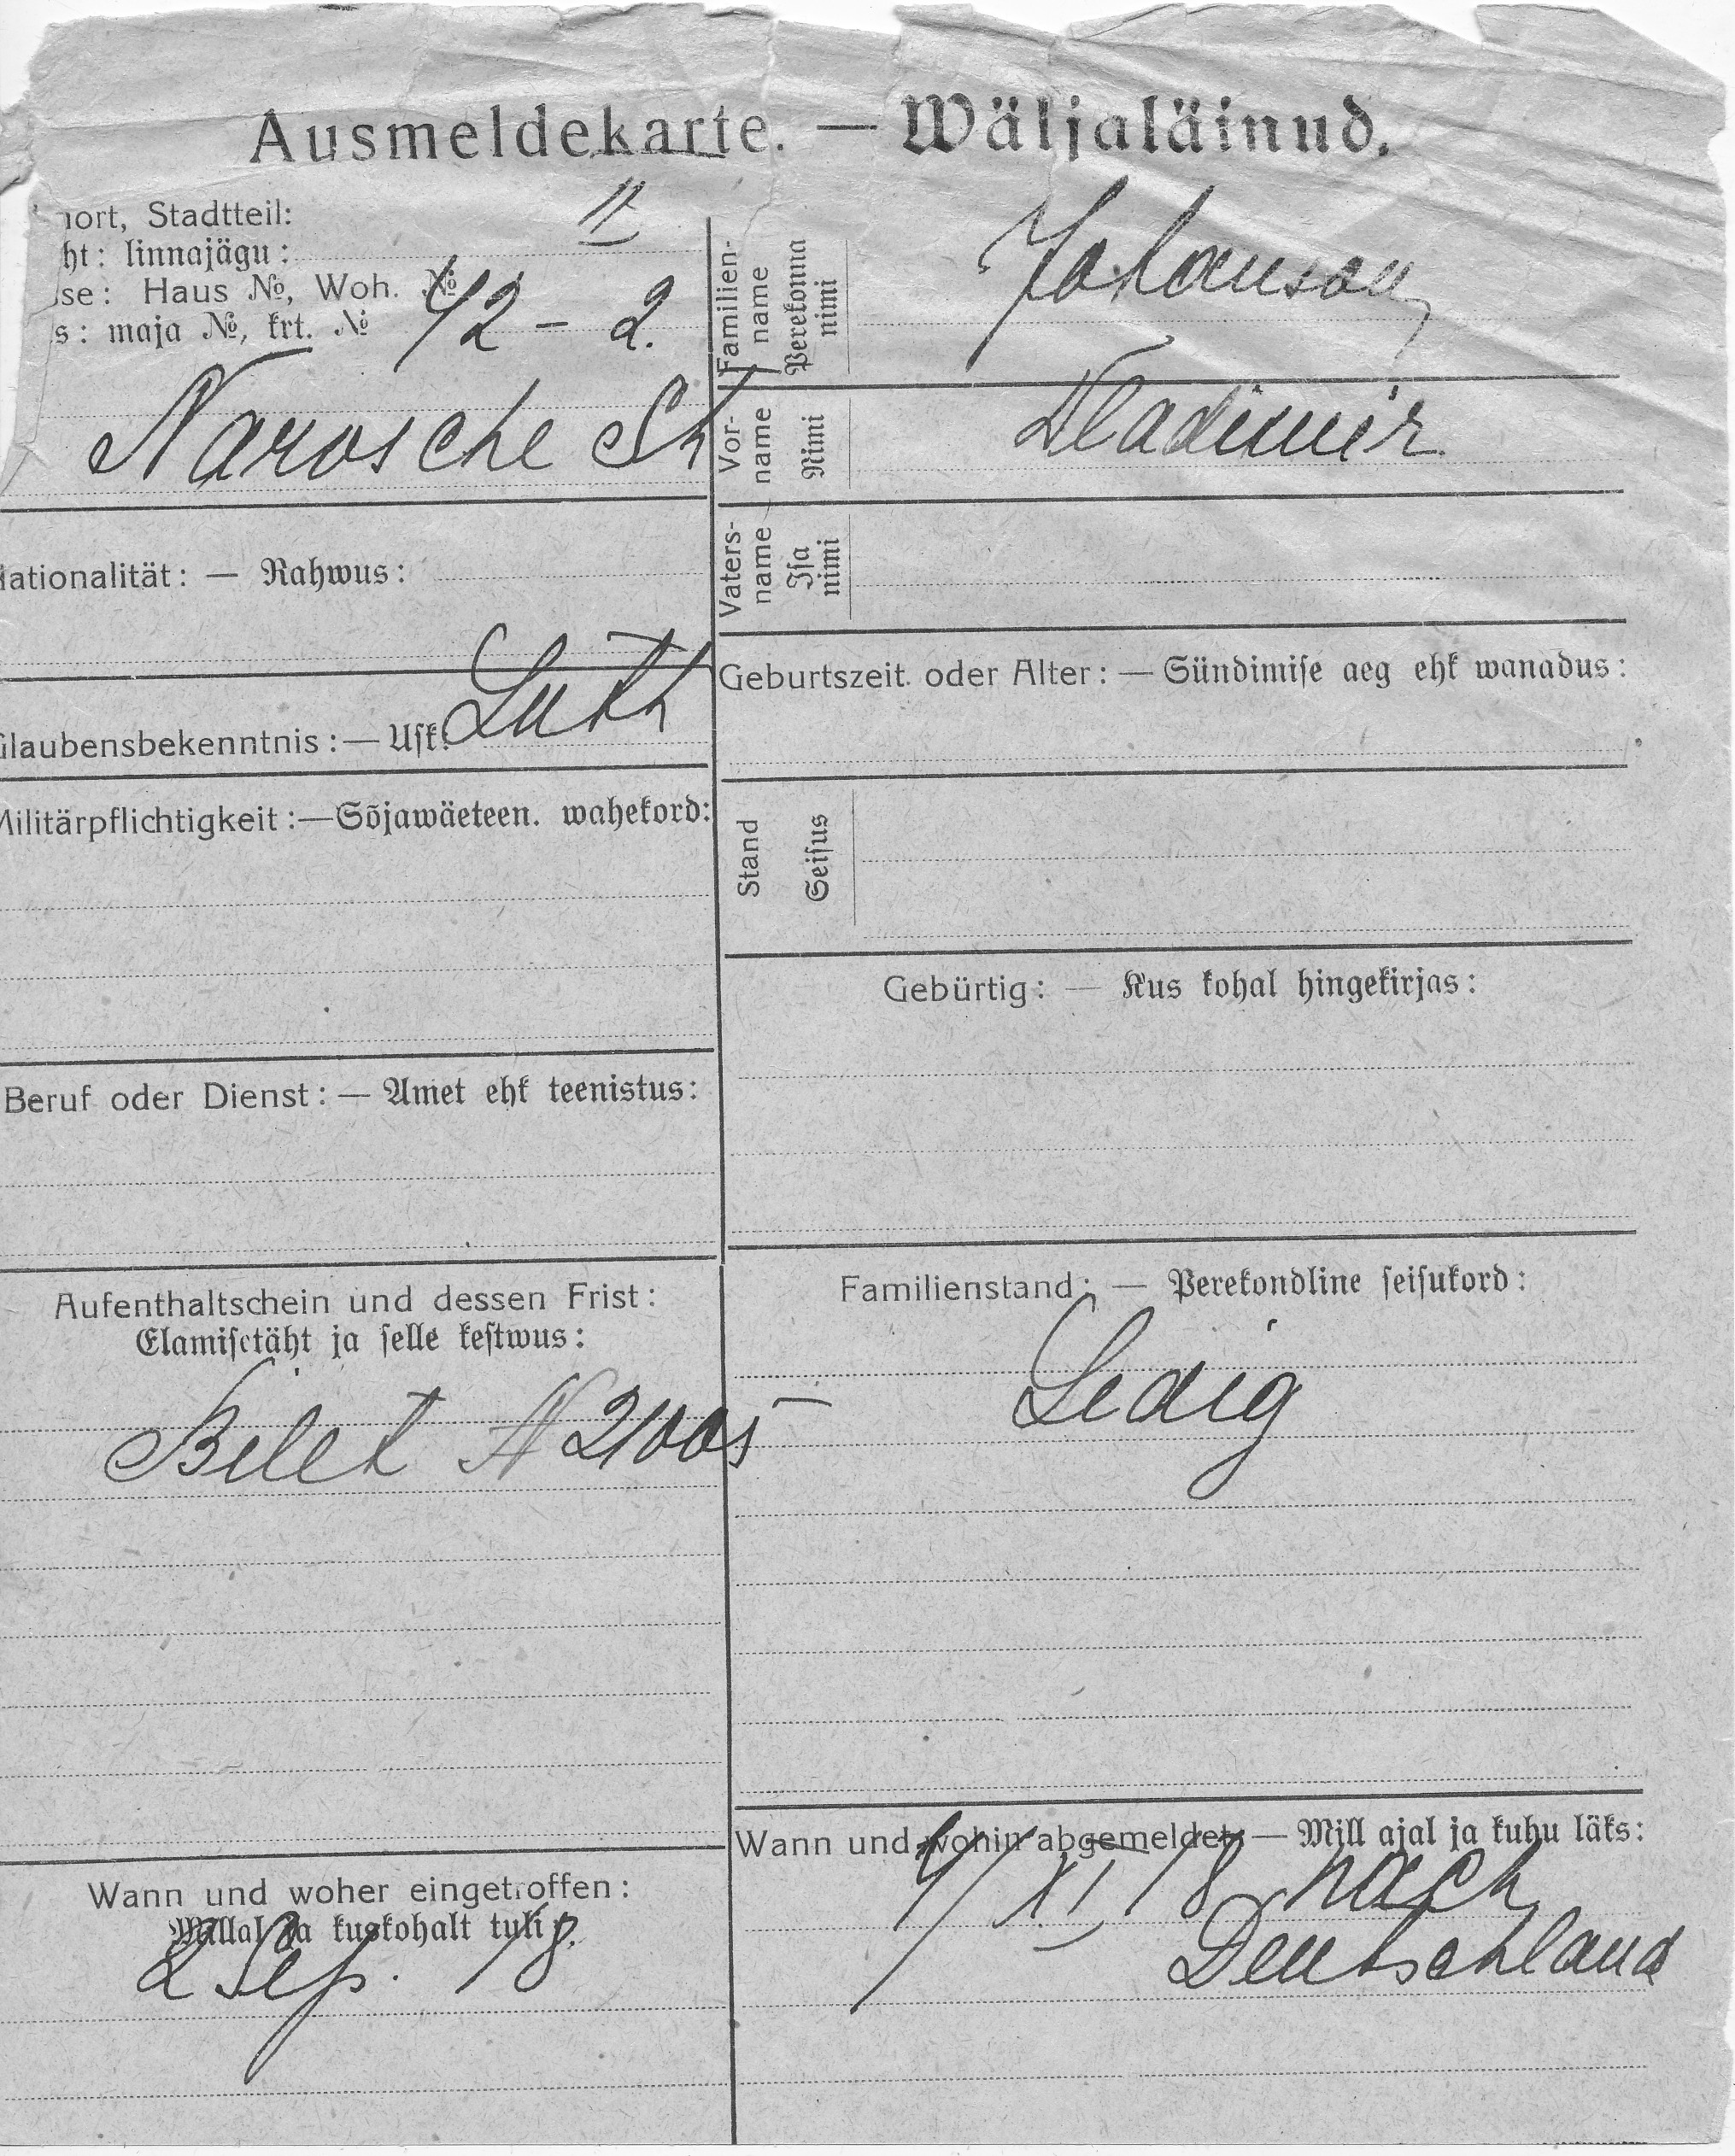 Ausmeldekarte. — Wäljaläinud.
nort, Stadtteil: II
ht: linnajägu:
se: Haus №, Woh. №
s: maja №, krt. № 42 – 2.
Narvsche St
Familien-
name
Perekonna
nimi
Johanson
Vor-
name
Nimi
Wladimir
Vaters-
name
Isa
nimi
Nationalität: — Rahwus:
Glaubensbekenntnis: — Usk: Luth
Geburtszeit oder Alter: — Sündimise aeg ehk wanadus:
Militärpflichtigkeit: — Sõjawäeteen. wahekord:
Stand
Seisus
Gebürtig: — Kus kohal hingekirjas:
Beruf oder Dienst: — Amet ehk teenistus:
Aufenthaltschein und dessen Frist:
Elamisetäht ja selle kestwus:
Bilet N 21005
Familienstand: — Perekondline seisukord:
Ledig
Wann und woher eingetroffen:
Millal ja kuskohalt tuli:
2 Sep. 18.
Wann und wohin abgemeldet: — Mill ajal ja kuhu läks:
4/XI 18 nach
Deutschland